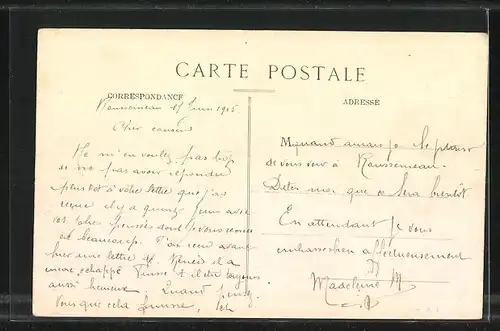 CARTE POSTALE
CORRESPONDANCE
ADRESSÉ
17 Juin 1915
Cher cousin
Ne m'en voulez pas trop
de ne pas avoir répondu
plus tôt à votre lettre que j'ai
reçue il y a quinze jours avec
vos chères pensées dont je vous remercie
beaucoup. J'ai reçu avant
hier une lettre de René il a
encore échappé Puisse t il être toujours
aussi heureux Quand
Vous que cela finisse,
M quand aurais je le plaisir
de vous voir à
Dites moi que ce sera bientôt.
En attendant je vous
embrasse bien affectueusement
Madeleine M